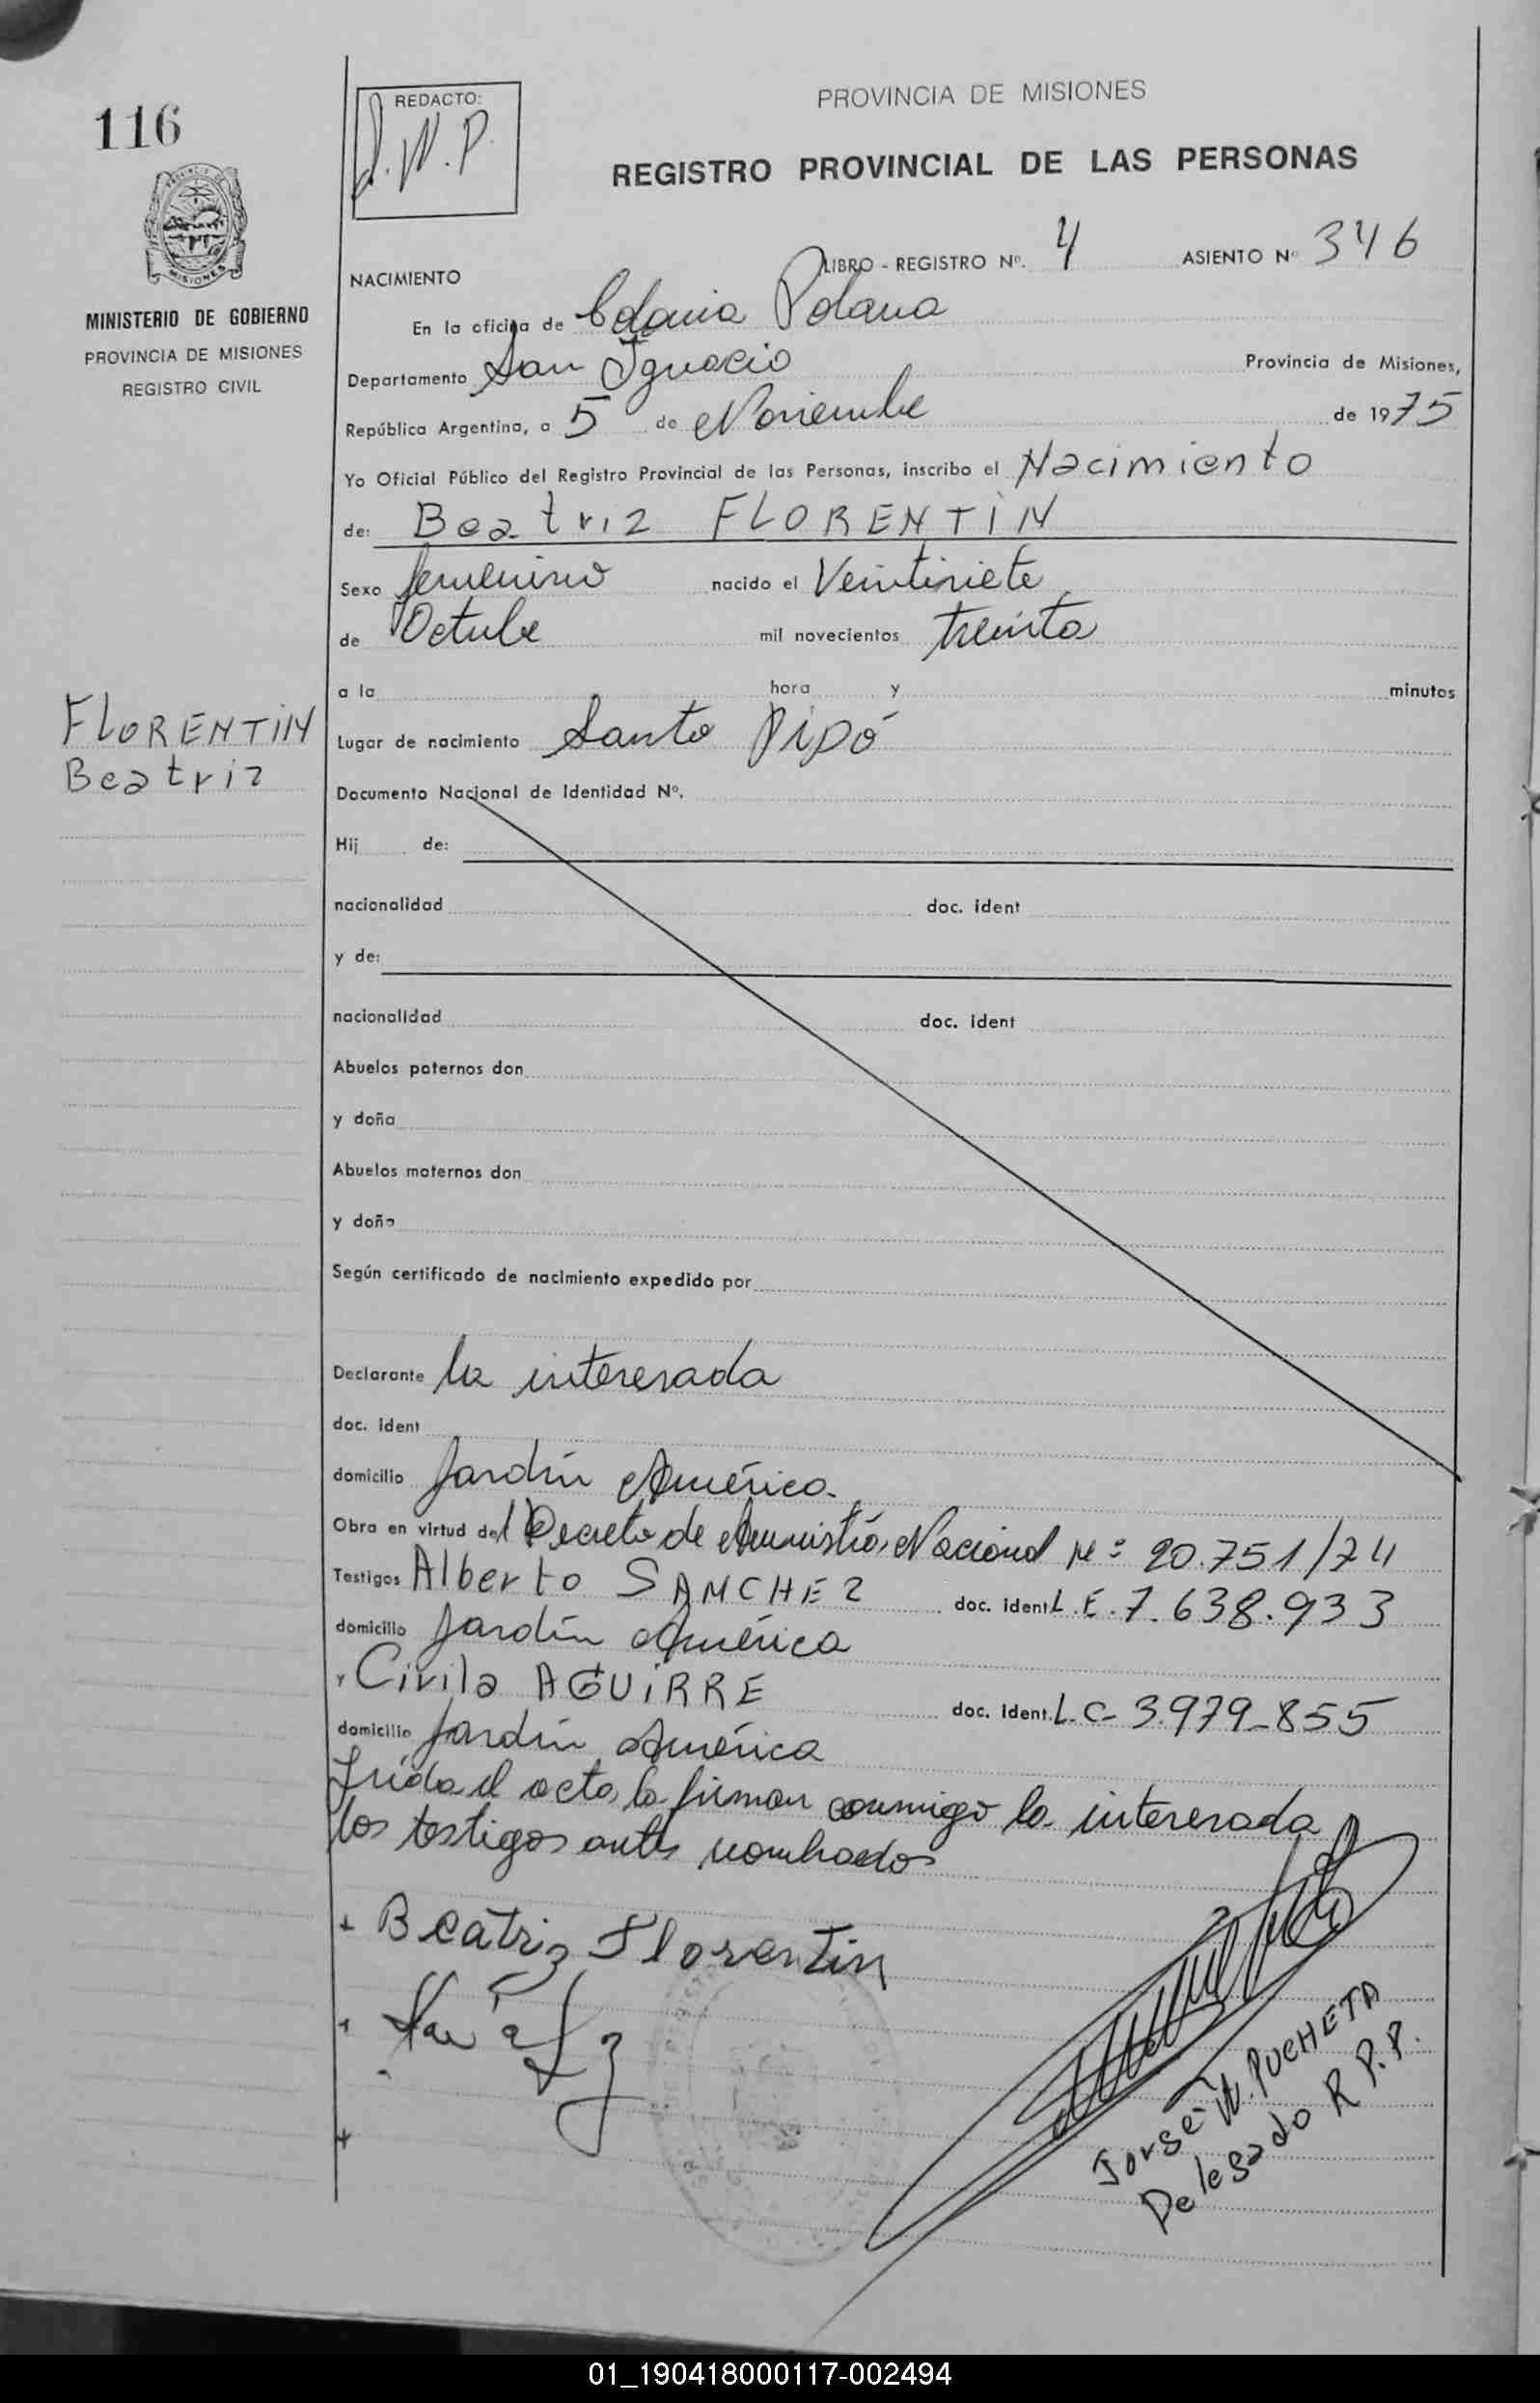 116
REDACTO:
J.W.P.
PROVINCIA DE MISIONES
REGISTRO PROVINCIAL DE LAS PERSONAS
MISIONES
MINISTERIO DE GOBIERNO
PROVINCIA DE MISIONES
REGISTRO CIVIL
NACIMIENTO
LIBRO - REGISTRO Nº. 4 ASIENTO Nº 346
En la oficina de Colonia Polana
Departamento San Ignacio Provincia de Misiones,
República Argentina, a 5 de Noviembre de 1975
Yo Oficial Público del Registro Provincial de las Personas, inscribo el Nacimiento
de: Beatriz FLORENTIN
Sexo femenino nacido el Veintisiete
de Octubre mil novecientos treinta
a la hora y minutos
FLORENTIN
Beatriz
Lugar de nacimiento Santo Pipó
Documento Nacional de Identidad Nº.
Hij de:
nacionalidad doc. ident
y de:
nacionalidad doc. ident
Abuelos paternos don
y doña
Abuelos maternos don
y doña
Según certificado de nacimiento expedido por
Declarante la interesada
doc. ident
domicilio Jardín América.
Obra en virtud del Decreto de Amnistía Nacional Nº 20.751/74
Testigos Alberto SANCHEZ doc. ident L.E. 7.638.933
domicilio Jardín América
y Civila AGUIRRE doc. ident. L.C- 3.979-855
domicilio Jardín América
el acta, la firman conmigo la interesada
los testigos antes nombrados
+ Beatriz Florentin
+
+
Jorge W. PUCHETA
Delegado R.P.P.
01_190418000117-002494